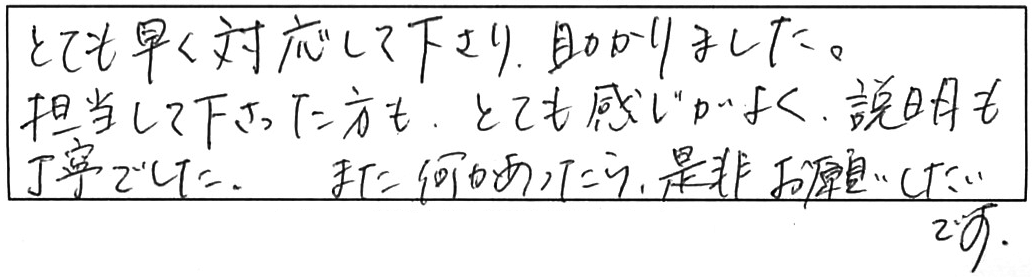 とても早く対応して下さり、助かりました。
担当して下さった方も、とても感じがよく、説明も
丁寧でした。 また何かあったら、是非お願いしたい
です。